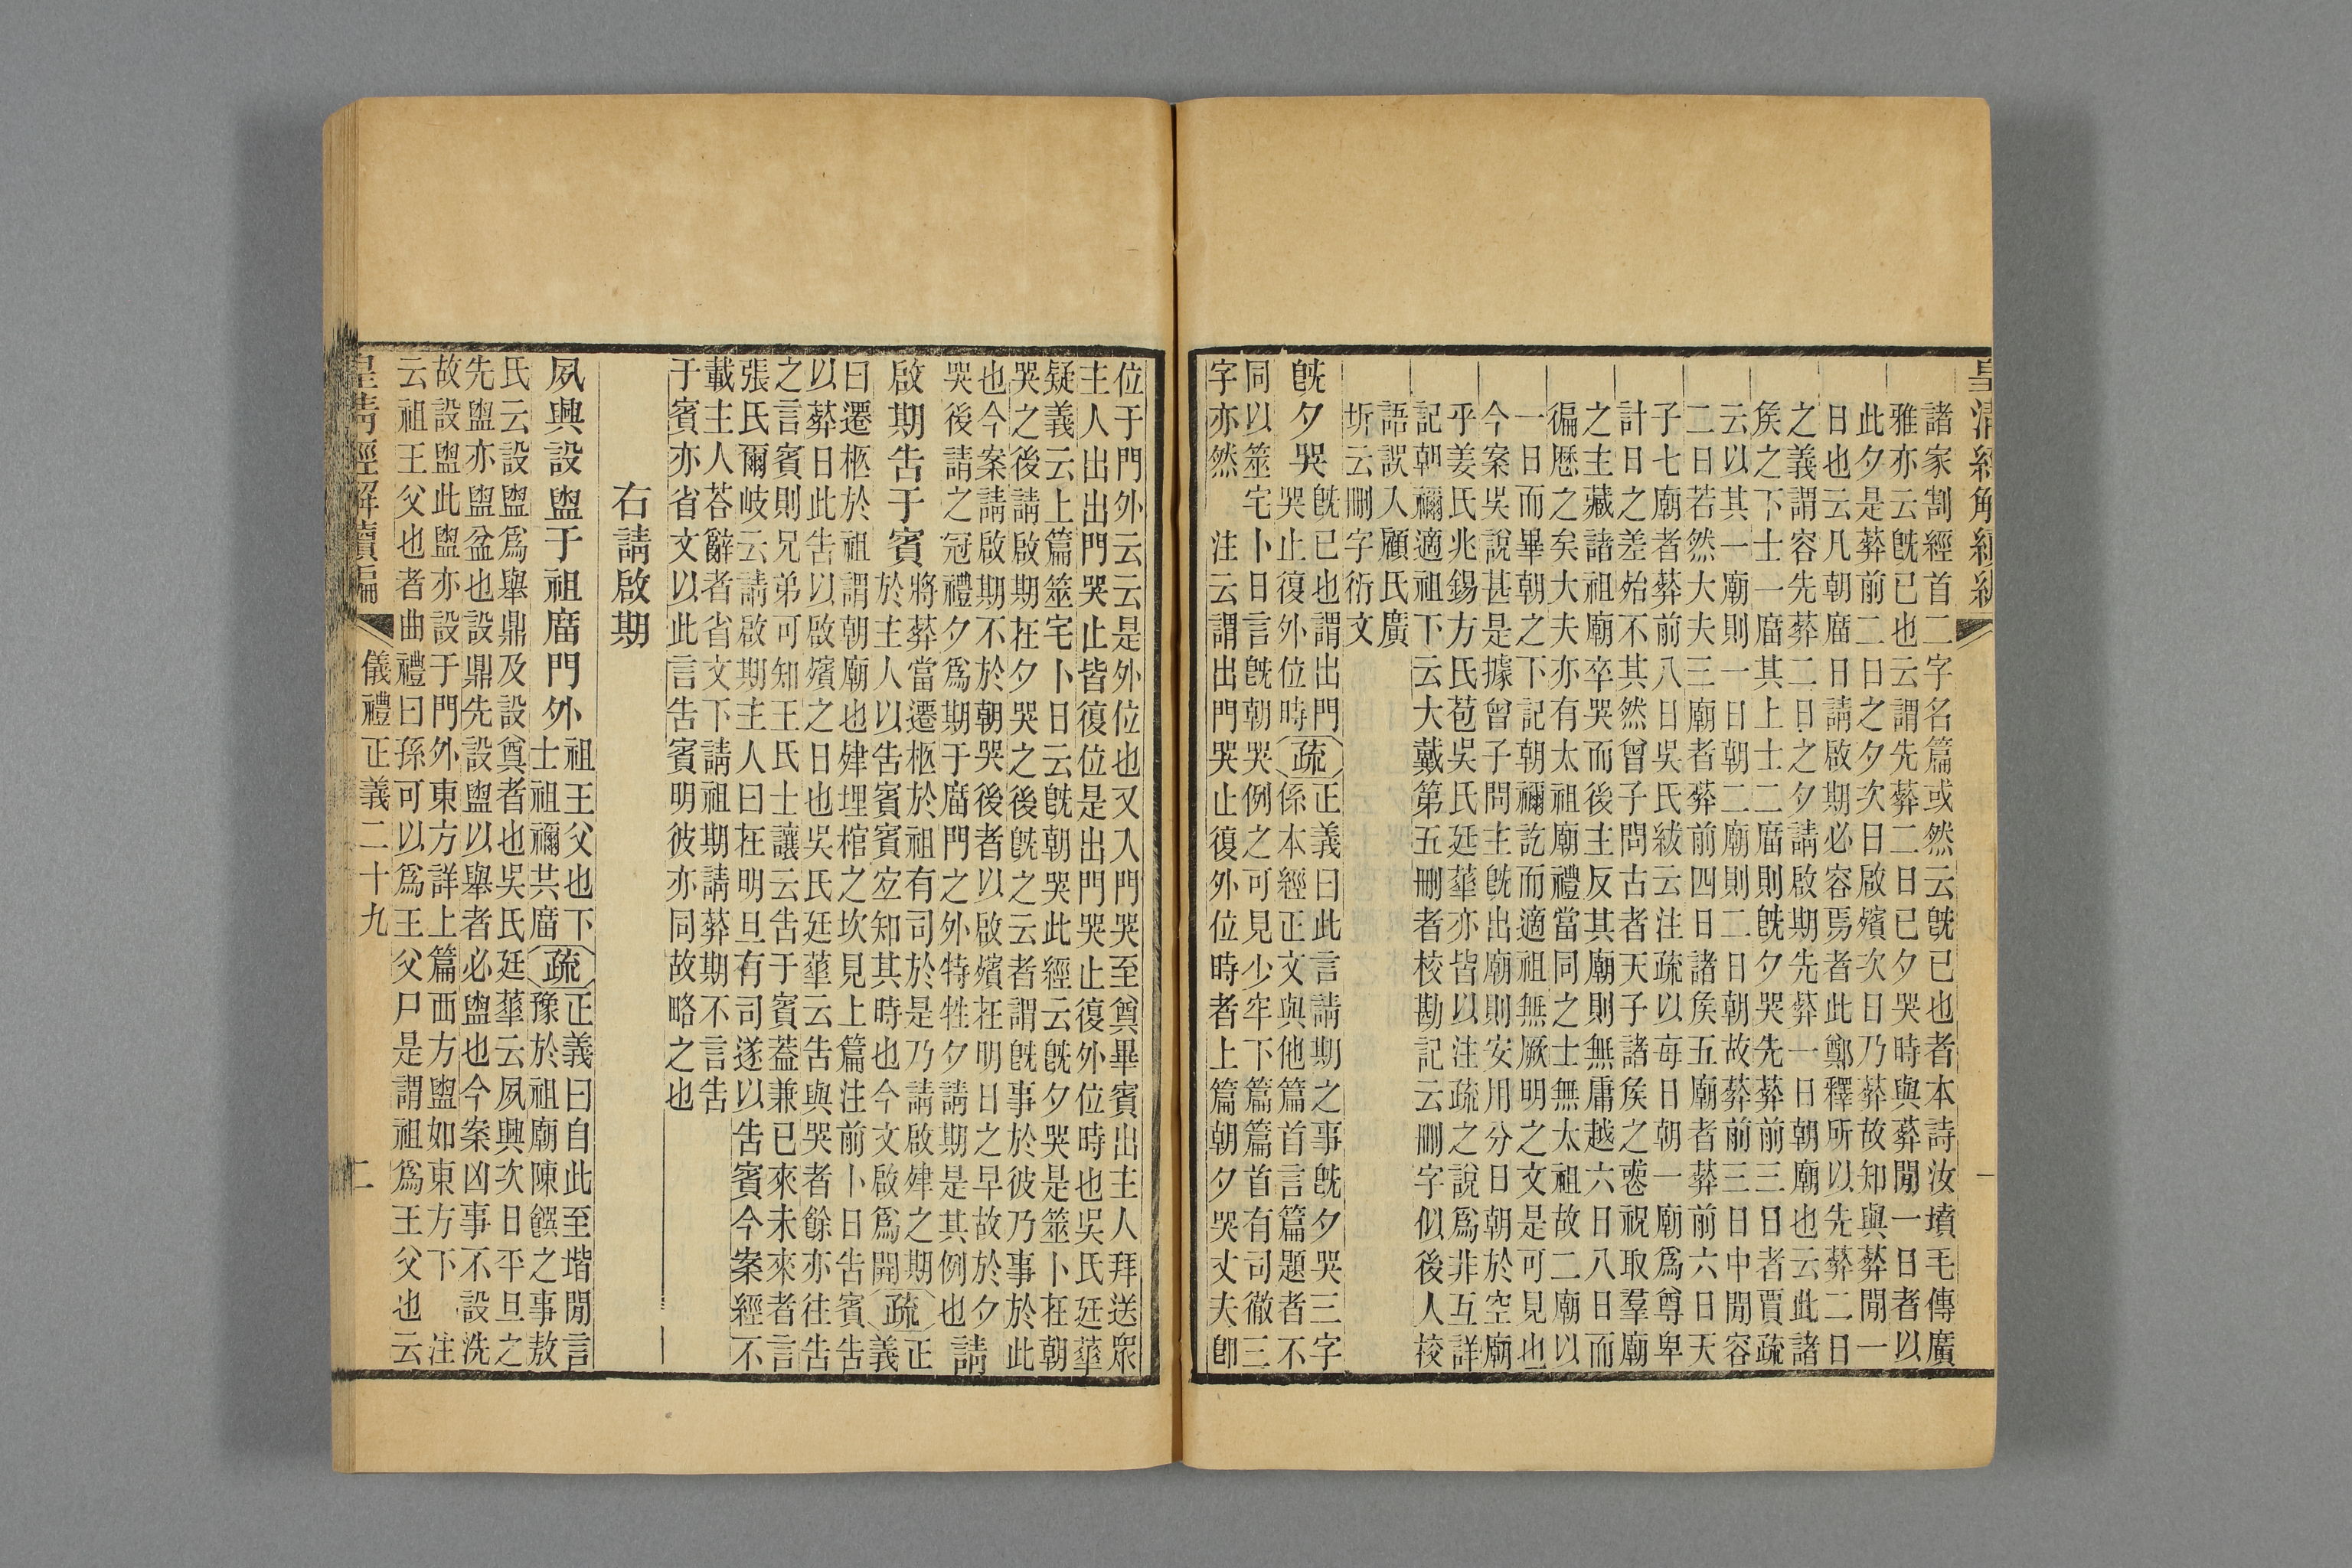 皇清經解續編
一
諸家割經首二字名篇或然云旣已也者本詩汝墳毛傳廣
雅亦云旣已也云謂先葬二日已夕哭時與葬閒一日者以
此夕是葬前二日之夕次日啟殯次日乃葬故知與葬閒一
日也云凡朝廟日請啟期必容焉者此鄭釋所以先葬二日
之義謂容先葬二日之夕請啟期先葬一日朝廟也云此諸
矦之下士一廟其上士二廟則旣夕哭先葬前三日者賈疏
云以其一廟則一日朝二廟則二日朝故葬前三日中閒容
二日若然大夫三廟者葬前四日諸矦五廟者葬前六日天
子七廟者葬前八日吳氏紱云注疏以每日朝一廟爲尊卑
計日之差殆不其然曾子問古者天子諸矦之喪祝取羣廟
之主藏諸祖廟卒哭而後主反其廟則無庸越六日八日而
徧歷之矣大夫亦有太祖廟禮當同之士無太祖故二廟以
一日而畢朝之下記朝禰訖而適祖無厥明之文是可見也
今案吳說甚是據曾子問主旣出廟則安用分日朝於空廟
乎姜氏兆錫方氏苞吳氏廷華亦皆以注疏之說爲非互詳
記朝禰適祖下云大戴第五刪者校勘記云刪字似後人校
語誤入顧氏廣
圻云刪字衍文
旣夕哭旣已也謂出門
哭止復外位時疏正義曰此言請期之事旣夕哭三字
係本經正文與他篇篇首言篇題者不
同以筮宅卜日言旣朝哭例之可見少牢下篇篇首有司徹三
字亦然注云謂出門哭止復外位時者上篇朝夕哭丈夫卽
位于門外云云是外位也又入門哭至奠畢賓出主人拜送眾
主人出出門哭止皆復位是出門哭止復外位時也吳氏廷華
疑義云上篇筮宅卜日云旣朝哭此經云旣夕哭是筮卜在朝
哭之後請啟期在夕哭之後旣之云者謂旣事於彼乃事於此
也今案請啟期不於朝哭後者以啟殯在明日之早故於夕
哭後請之冠禮夕爲期于廟門之外特牲夕請期是其例也請
啟期告于賓將葬當遷柩於祖有司於是乃請啟肂之期
於主人以告賓賓宐知其時也今文啟爲開疏正
義
曰遷柩於祖謂朝廟也肂埋棺之坎見上篇注前卜日告賓告
以葬日此告以啟殯之日也吳氏廷華云告與哭者餘亦往告
之言賓則兄弟可知王氏士讓云告于賓蓋兼已來未來者言
張氏爾岐云請啟期主人曰在明旦有司遂以告賓今案經不
載主人荅辭者省文下請祖期請葬期不言告
于賓亦省文以此言告賓明彼亦同故略之也
右請啟期
夙興設盥于祖廟門外祖王父也下
士祖禰共廟疏正義曰自此至堦閒言
豫於祖廟陳饌之事敖
氏云設盥爲舉鼎及設奠者也吳氏廷華云夙興次日平旦之
先盥亦盥盆也設鼎先設盥以舉者必盥也今案凶事不設洗
故設盥此盥亦設于門外東方詳上篇西方盥如東方下注
云祖王父也者曲禮曰孫可以爲王父尸是謂祖爲王父也云
皇清經解續編
儀禮正義二十九
二